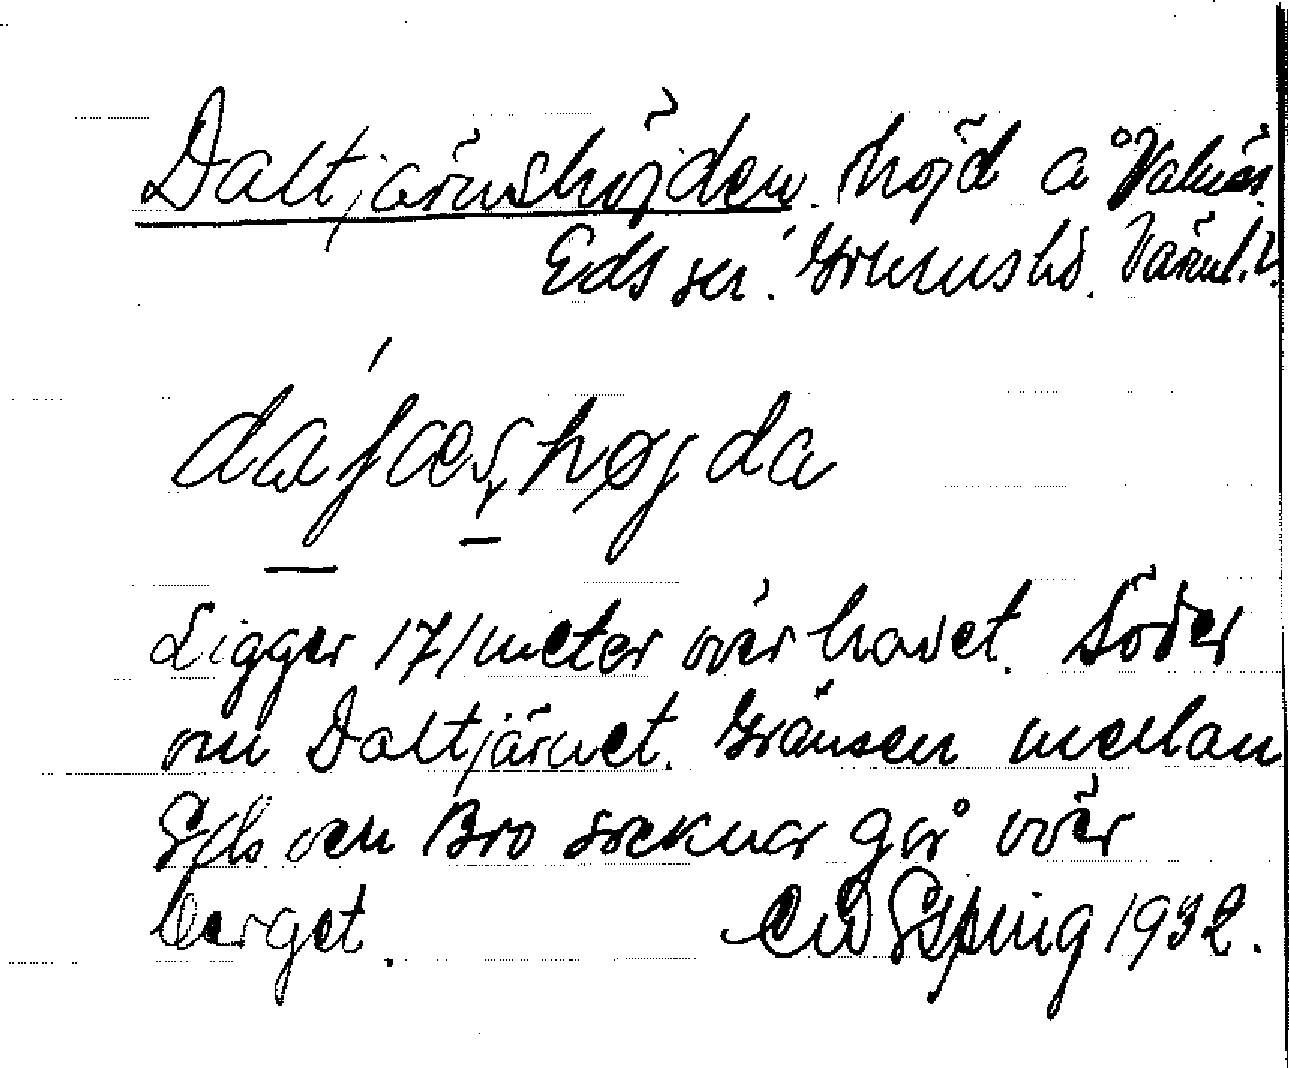 Daltjärnshöjden. höjd å Valnäs.
Eds sn. Grums hd. Värml. l.
dájæʂhøjda
Ligger 171 meter över havet. Söder
om Daltjärnet. Gränsen mellan
Eds och Bro socknar går över
berget. Esping 1932.